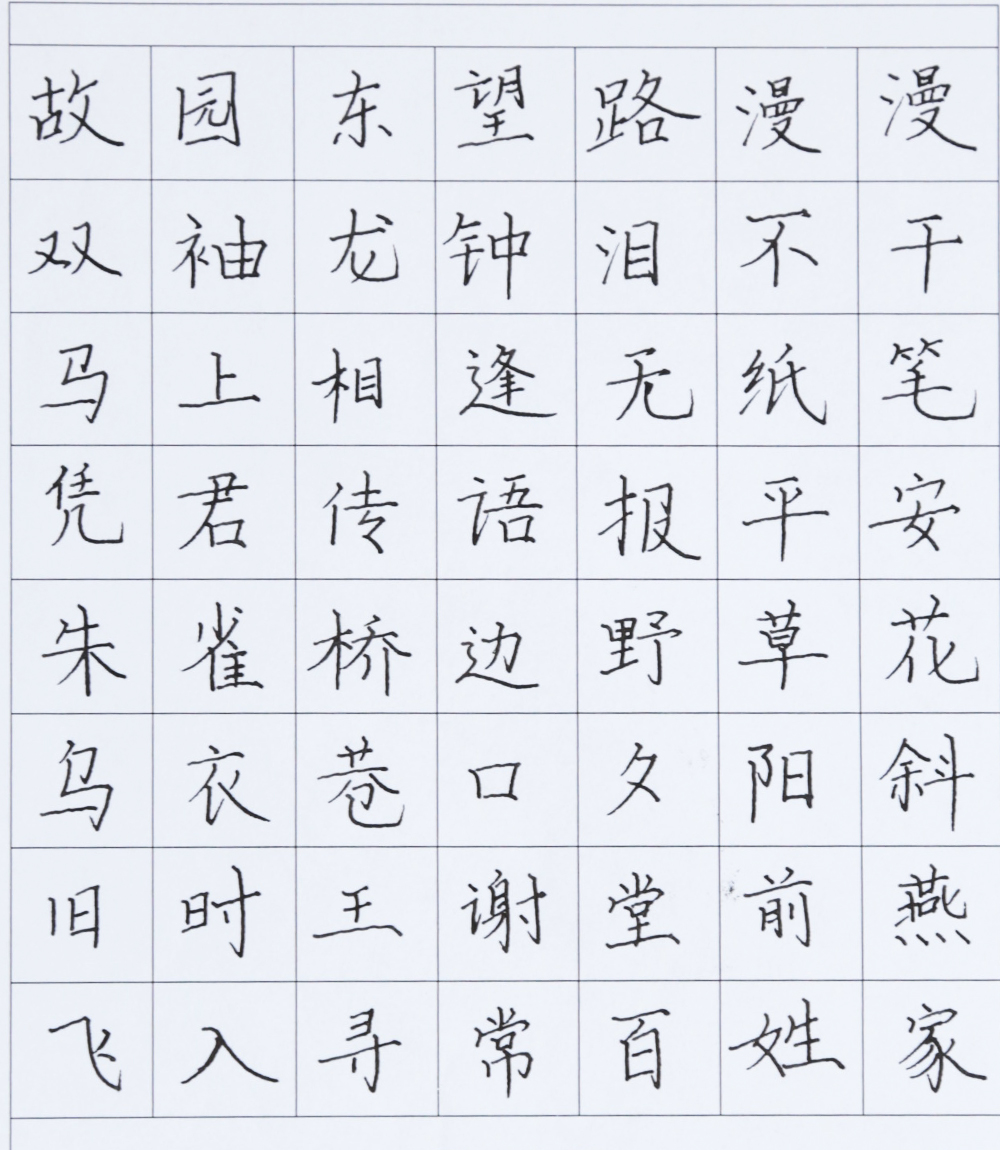 故园东望路漫漫
双袖龙钟泪不干
马上相逢无纸笔
凭君传语报平安
朱雀桥边野草花
乌衣巷口夕阳斜
旧时王谢堂前燕
飞入寻常百姓家